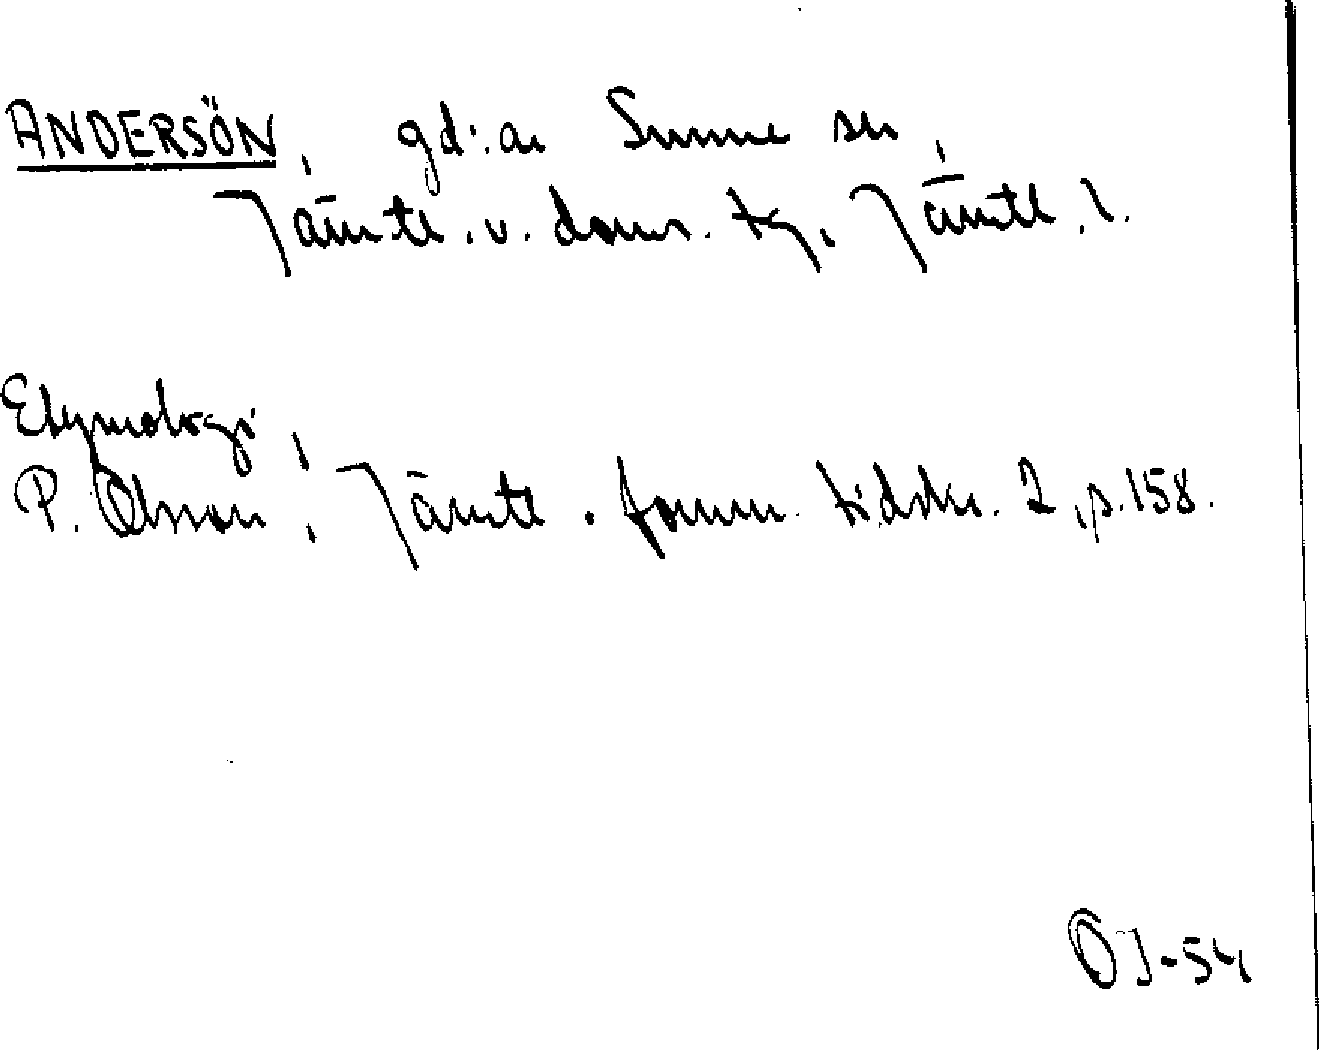 ANDERSÖN, gd:ar Sunne sn,
Jämtl. v. doms. tg. Jämtl. l.
Etymologi
P. Olsson, Jämtl. fornm. tidskr. 2, s. 158.
OJ-54